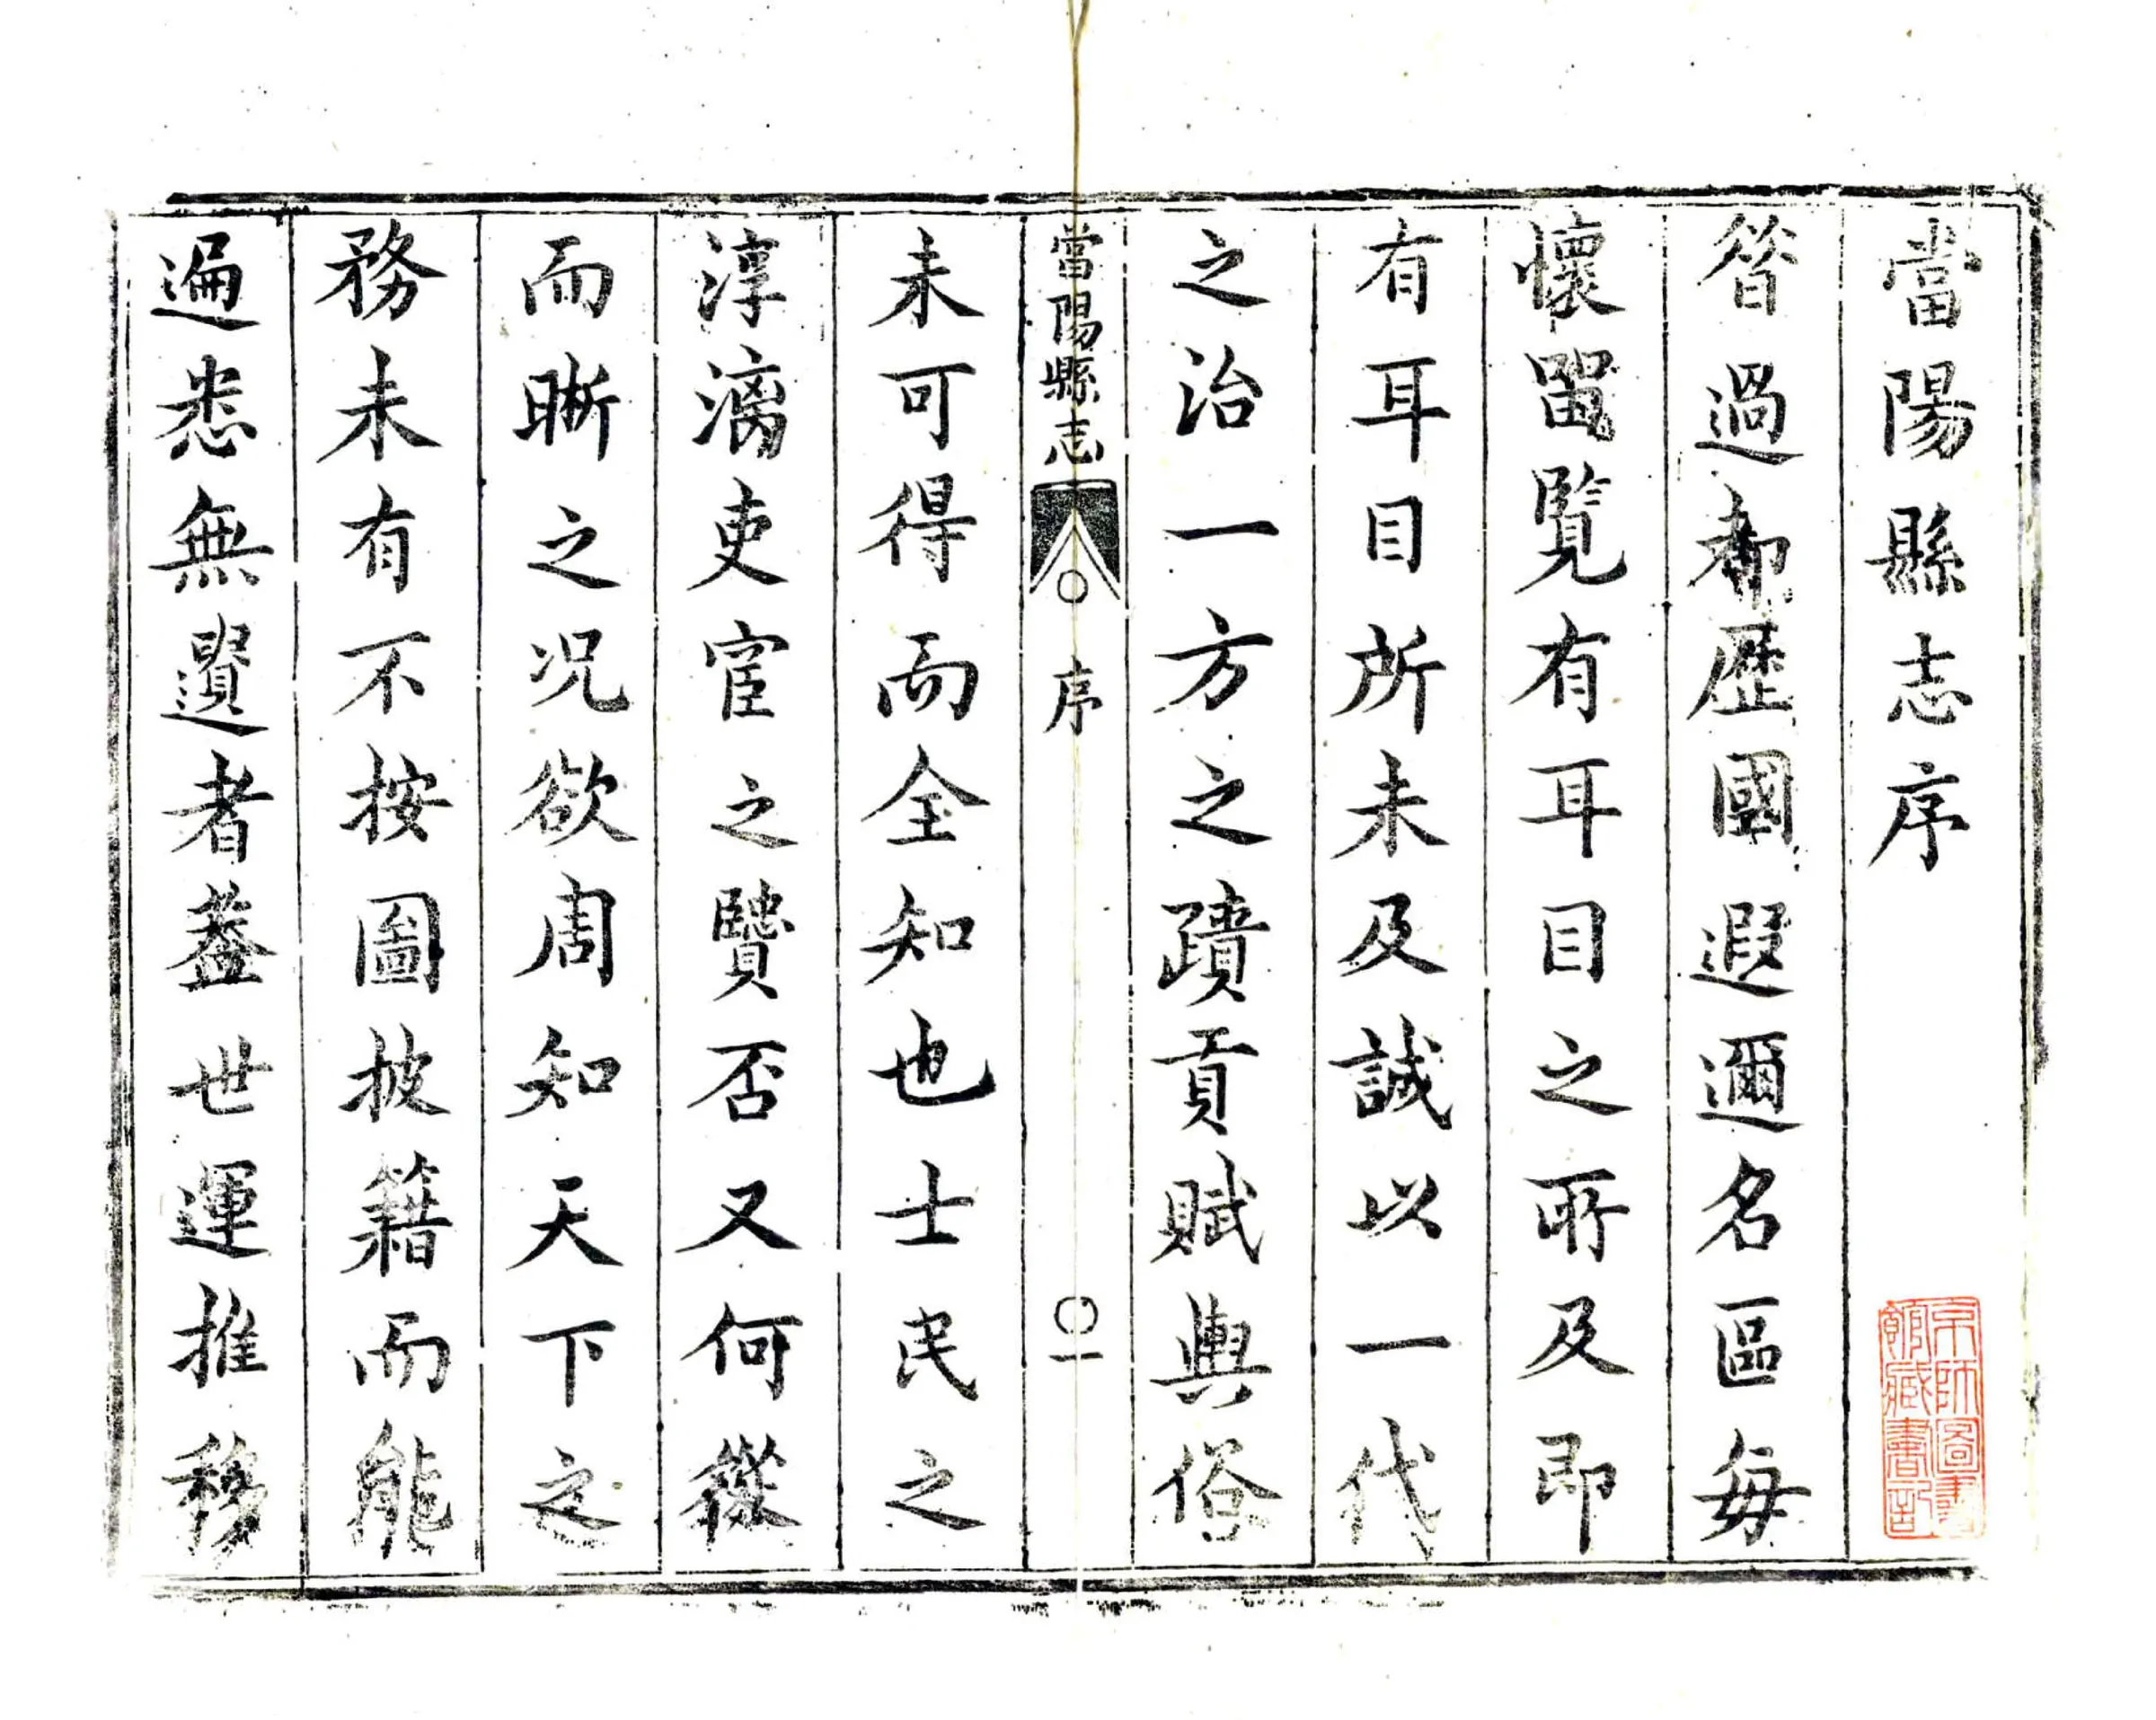 當陽縣志序
昝過都歷國遐邇名區每
懷畱覧有耳目之所及即
有耳目所未及誠以一代
之治一方之蹟貢賦輿俗
當陽縣志
序
〇一
未可得而全知也士民之
淳漓吏宦之賢否又何從
而晰之況欲周知天下之
務未有不按圖披籍而能
遍悉無遺者蓋世運推移
京師圖書
館藏書記